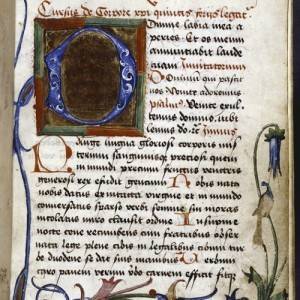 Cursus de Corpore xpi quintis feriis legatʳ
Domine labia mea a
peries Et os meum
annuntiabit laudē
tuam Inuitatorium
Dominum qui pascit
nos Venite adoremus
psalmus Venite exul
temus domino, iubi
lemus
Pange lingua gloriosi corporis mis
terium sanguinisque preciosi quem in
mundi precium fructus ventris
generosi rex effudit gencium Nobis
natus datus et intacta virgine et in mundo
conuersatus sparso verbi semine sui moras
incolatus miro clausit ordine In supreme
nocte cene recumbens cum fratribus obser
uata lege plene cibis in legalibus cibum tur
be duodene se dat suis manibus Verbum
caro panem verum vbo carnem efficit fitqʒ